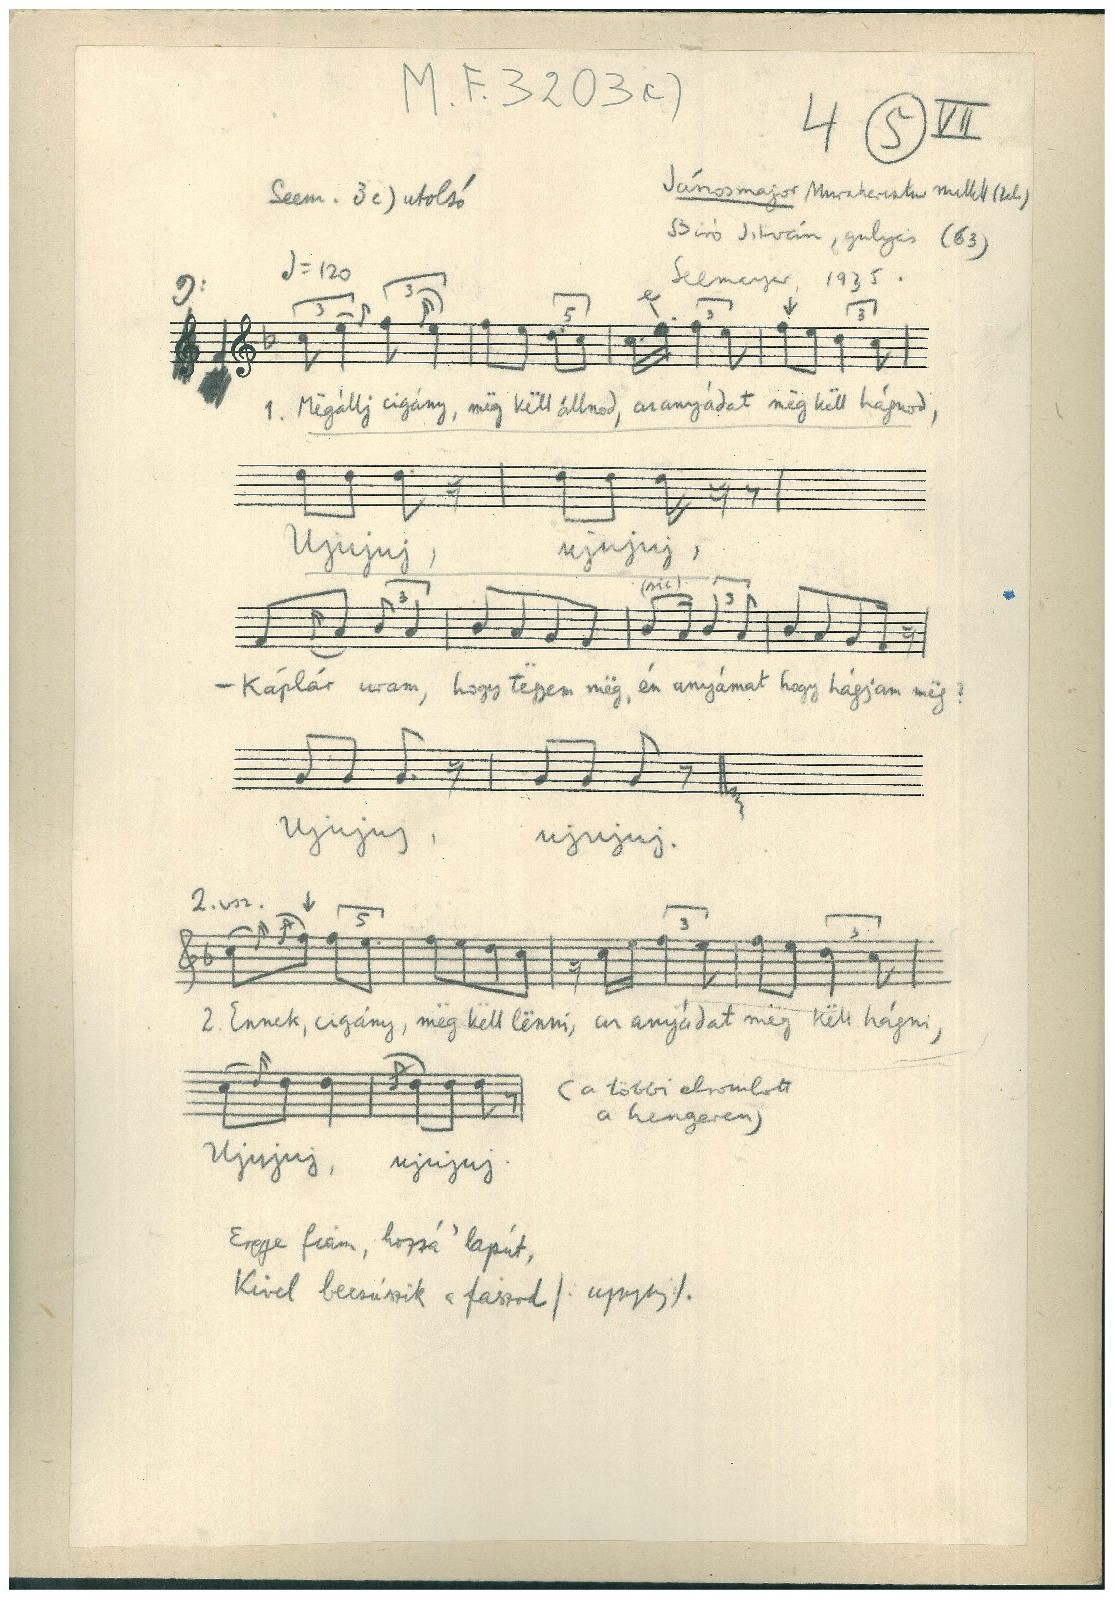 M.F. 3203 c)
4 5 VII
Seem. 3c) utolsó
Jánosmajor, Murakeresztur mellett (Zala)
Biró István, gulyás (63)
Seemayer, 1935.
♩=120
3 3 5 3 3
1. Mëgállj cigány, mëg këll állnod, az anyádat mëg këll hágnod,
Ujujuj, ujujuj,
3 (sic!) 3
– Káplár uram, hogy tëgyem mëg, én anyámat hogy hágjam mëg?
Ujujuj, ujujuj.
2. vsz.
5 3 3
2. Ennek, cigány, mëg këll lënni, az anyádat mëg këll hágni,
(a többi elromlott
a hengeren)
Ujujuj, ujujuj.
Eregge fiam, hozzá' lapút,
Kivel becsúszik a faszod /: ujujuj :/.